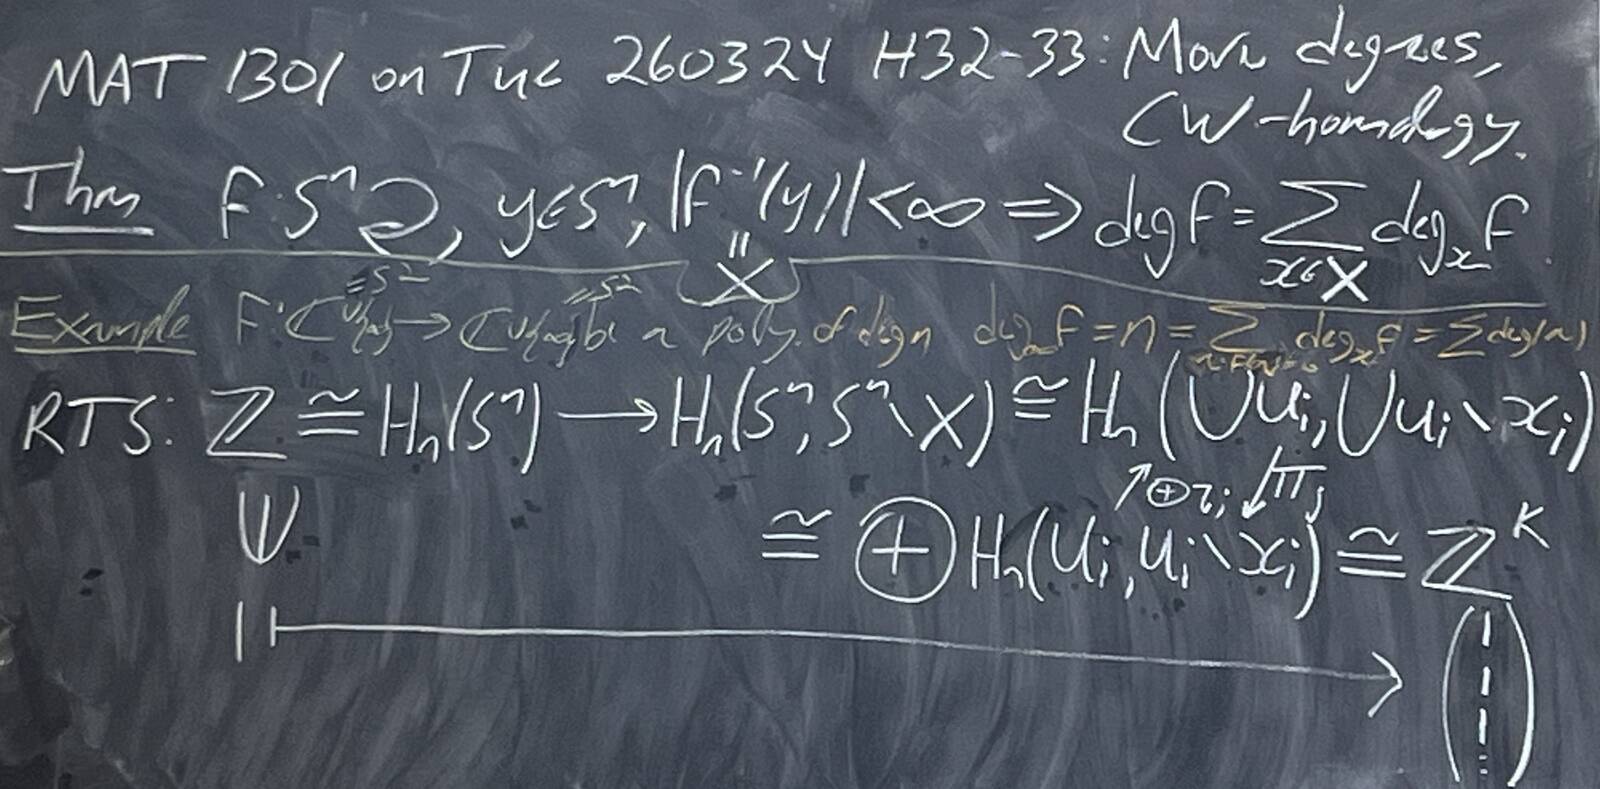 MAT 1301 on Tue 260324 H32-33: More degrees,
CW-homology.
Thm f: Sⁿ⊋, y∈Sⁿ, |f⁻¹(y)|<∞ ⇒ deg f = Σ_{x∈X} deg_x f
" X
Example f: ℂ∪{∞} =S² → ℂ∪{∞} =S² be a poly. of deg n deg_∞ f = n = Σ deg_x f = Σ deg(x)
RTS: ℤ ≅ Hₙ(Sⁿ) → Hₙ(Sⁿ, Sⁿ\X) ≅ Hₙ(∪Uᵢ, ∪Uᵢ\xᵢ)
↑⊕ιᵢ ↙πⱼ
ψ ≅ ⊕ Hₙ(Uᵢ, Uᵢ\xᵢ) ≅ ℤᴷ
1 ↦ (1 1 1 ⋮)